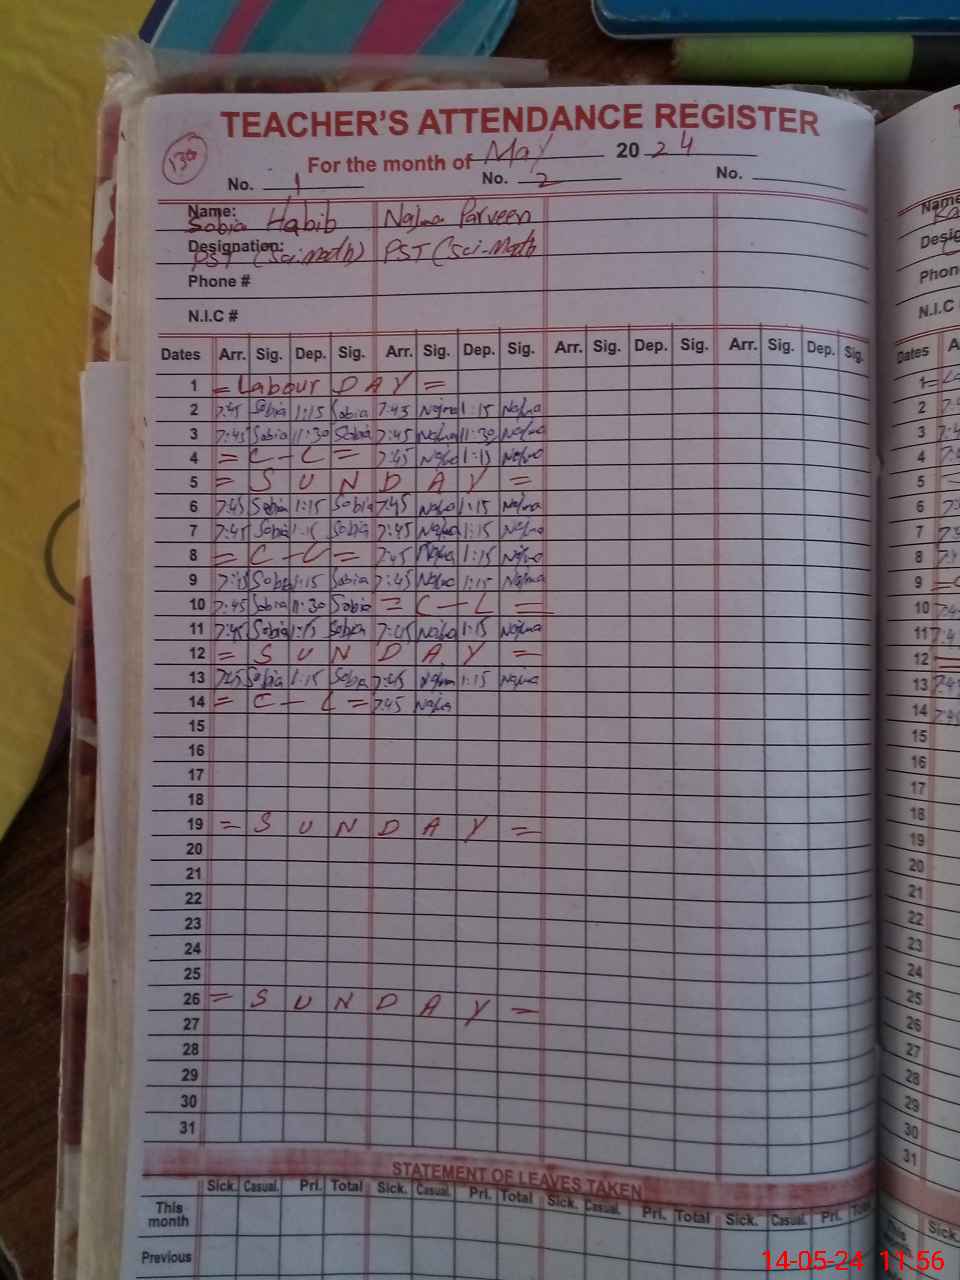 TEACHER'S ATTENDANCE REGISTER
136
For the month of May 20 24
No. 1 No. 2 No.
Name: Sobia Habib Najma Parveen
Designation: PST (Sci-math) PST (Sci-Math
Phone #
N.I.C #
Dates Arr. Sig. Dep. Sig. Arr. Sig. Dep. Sig. Arr. Sig. Dep. Sig. Arr. Sig. Dep. Sig.
1 = Labour DAY =
2 7:45 Sobia 1:15 Sobia 7:45 Najma 1:15 Najma
3 7:45 Sobia 11:30 Sobia 7:45 Najma 11:30 Najma
4 = C - L = 7:45 Najma 1:15 Najma
5 = S U N D A Y =
6 7:45 Sobia 1:15 Sobia 7:45 Najma 1:15 Najma
7 7:45 Sobia 1:15 Sobia 7:45 Najma 1:15 Najma
8 = C - L = 7:45 Najma 1:15 Najma
9 7:45 Sobia 1:15 Sobia 7:45 Najma 1:15 Najma
10 7:45 Sobia 11:30 Sobia = C - L =
11 7:45 Sobia 1:15 Sobia 7:45 Najma 1:15 Najma
12 = S U N D A Y =
13 7:45 Sobia 1:15 Sobia 7:45 Najma 1:15 Najma
14 = C - L = 7:45 Najma
15
16
17
18
19 = S U N D A Y =
20
21
22
23
24
25
26 = S U N D A Y =
27
28
29
30
31
STATEMENT OF LEAVES TAKEN
Sick. Casual. Pri. Total Sick. Casual. Pri. Total Sick. Casual. Pri. Total Sick. Casual. Pri. Total
This month
Previous
Name
Desig
Phon
N.I.C
Dates A
1 =
2
3
4
5
6
7
8
9
10
11
12
13
14
15
16
17
18
19
20
21
22
23
24
25
26
27
28
29
30
31
Sick.
14-05-24 11:56